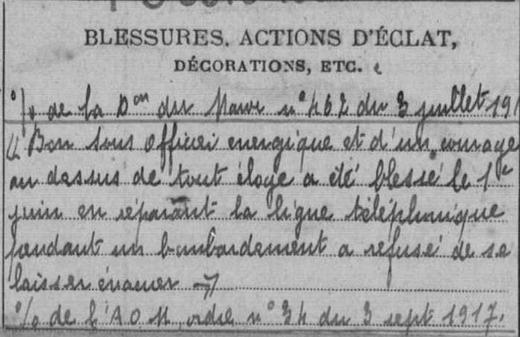 BLESSURES, ACTIONS D'ÉCLAT,
DÉCORATIONS, ETC.
% de la Don du Maroc n° 462 du 3 juillet 191
"Bon sous officier energique et d'un courage
au dessus de tout éloge a été blessé le 1er
juin en réparant la ligne téléphonique
pendant un bombardement a refusé de se
laisser évacuer"
% de l'A O M ordre n° 34 du 3 sept 1917.